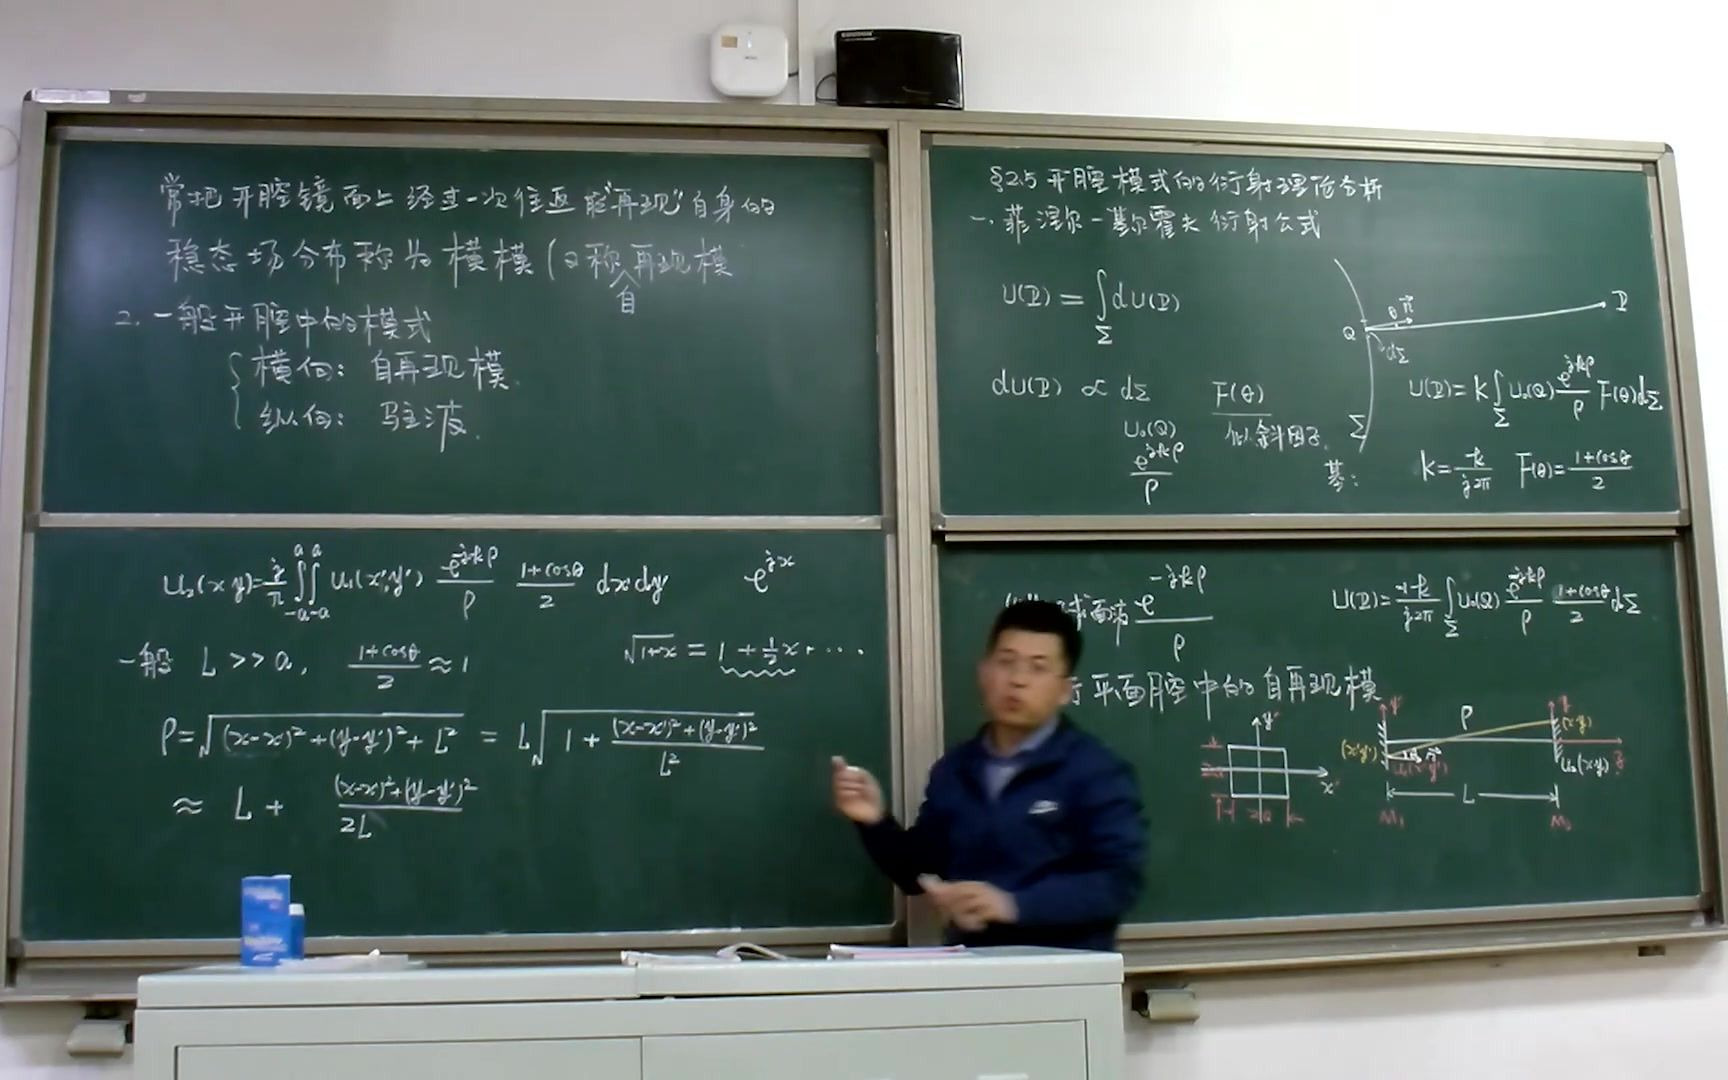 常把开腔镜面上经过一次往返能"再现"自身的
稳态场分布称为横模(又称自再现模
2. 一般开腔中的模式
横向: 自再现模.
纵向: 驻波.
§2.5 开腔模式的衍射理论分析
一、菲涅尔-基尔霍夫衍射公式
U(P) = ∫_Σ dU(P)
dU(P) ∝ dΣ
U₀(Q)
e^{jkρ}/ρ
F(θ)
倾斜因子.
Q θ n⃗ P
dΣ
Σ
U(P)=K∫_Σ U₀(Q) e^{jkρ}/ρ F(θ)dΣ
基: K = k/(j2π) F(θ)=(1+cosθ)/2
U₂(x y)= j/π ∫_{-a}^{a}∫_{-a}^{a} U₁(x',y') e^{-jkρ}/ρ (1+cosθ)/2 dx'dy'
e^{jx}
一般 L >> a, (1+cosθ)/2 ≈ 1
√(1+x) = 1 + ½x + ····
ρ=√((x-x')²+(y-y')²+L²) = L√(1 + ((x-x')²+(y-y')²)/L²)
≈ L + ((x-x')²+(y-y')²)/(2L)
球面波 e^{-jkρ}/ρ
U(P)= -k/(j2π) ∫_Σ U₀(Q) e^{-jkρ}/ρ (1+cosθ)/2 dΣ
行平面腔中的自再现模
y'
x'
2a
2a
y' ρ y
(x'y') θ n⃗ (x y)
U₁(x'y') U₂(x y) z
L
M₁ M₂